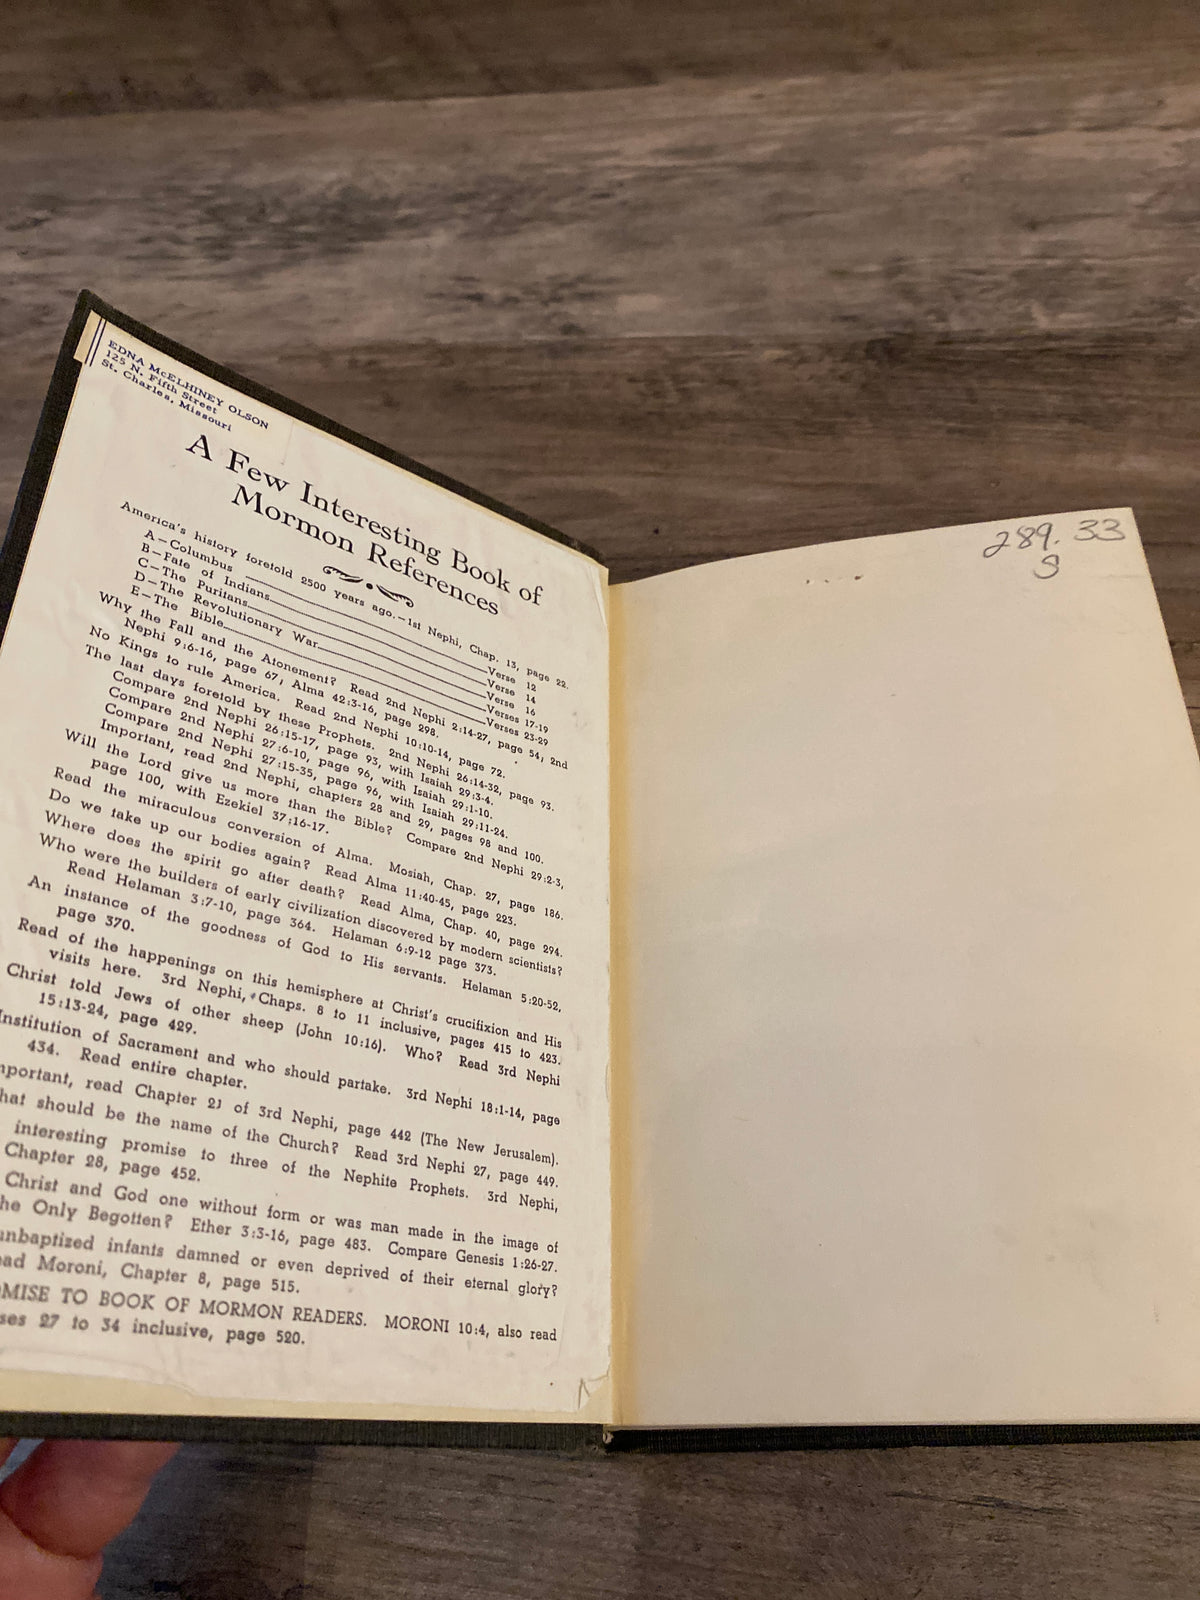 EDNA McELHINEY OLSON
125 N. Fifth Street
St. Charles, Missouri
A Few Interesting Book of
Mormon References
America's history foretold 2500 years ago.—1st Nephi, Chap. 13, page 22.
A—Columbus Verse 12
B—Fate of Indians Verse 14
C—The Puritans Verse 16
D—The Revolutionary War Verses 17-19
E—The Bible Verses 23-29
Why the Fall and the Atonement? Read 2nd Nephi 2:14-27, page 54; 2nd
Nephi 9:6-16, page 67; Alma 42:3-16, page 298.
No Kings to rule America. Read 2nd Nephi 10:10-14, page 72.
The last days foretold by these Prophets. 2nd Nephi 26:14-32, page 93.
Compare 2nd Nephi 26:15-17, page 93, with Isaiah 29:3-4.
Compare 2nd Nephi 27:6-10, page 96, with Isaiah 29:1-10.
Compare 2nd Nephi 27:15-35, page 96, with Isaiah 29:11-24.
Important, read 2nd Nephi, chapters 28 and 29, pages 98 and 100.
Will the Lord give us more than the Bible? Compare 2nd Nephi 29:2-3,
page 100, with Ezekiel 37:16-17.
Read the miraculous conversion of Alma. Mosiah, Chap. 27, page 186.
Do we take up our bodies again? Read Alma 11:40-45, page 223.
Where does the spirit go after death? Read Alma, Chap. 40, page 294.
Who were the builders of early civilization discovered by modern scientists?
Read Helaman 3:7-10, page 364. Helaman 6:9-12 page 373.
An instance of the goodness of God to His servants. Helaman 5:20-52,
page 370.
Read of the happenings on this hemisphere at Christ's crucifixion and His
visits here. 3rd Nephi, Chaps. 8 to 11 inclusive, pages 415 to 423.
Christ told Jews of other sheep (John 10:16). Who? Read 3rd Nephi
15:13-24, page 429.
Institution of Sacrament and who should partake. 3rd Nephi 18:1-14, page
434. Read entire chapter.
mportant, read Chapter 21 of 3rd Nephi, page 442 (The New Jerusalem).
hat should be the name of the Church? Read 3rd Nephi 27, page 449.
interesting promise to three of the Nephite Prophets. 3rd Nephi,
Chapter 28, page 452.
Christ and God one without form or was man made in the image of
he Only Begotten? Ether 3:3-16, page 483. Compare Genesis 1:26-27.
unbaptized infants damned or even deprived of their eternal glory?
ad Moroni, Chapter 8, page 515.
MISE TO BOOK OF MORMON READERS. MORONI 10:4, also read
ses 27 to 34 inclusive, page 520.
289.33
S